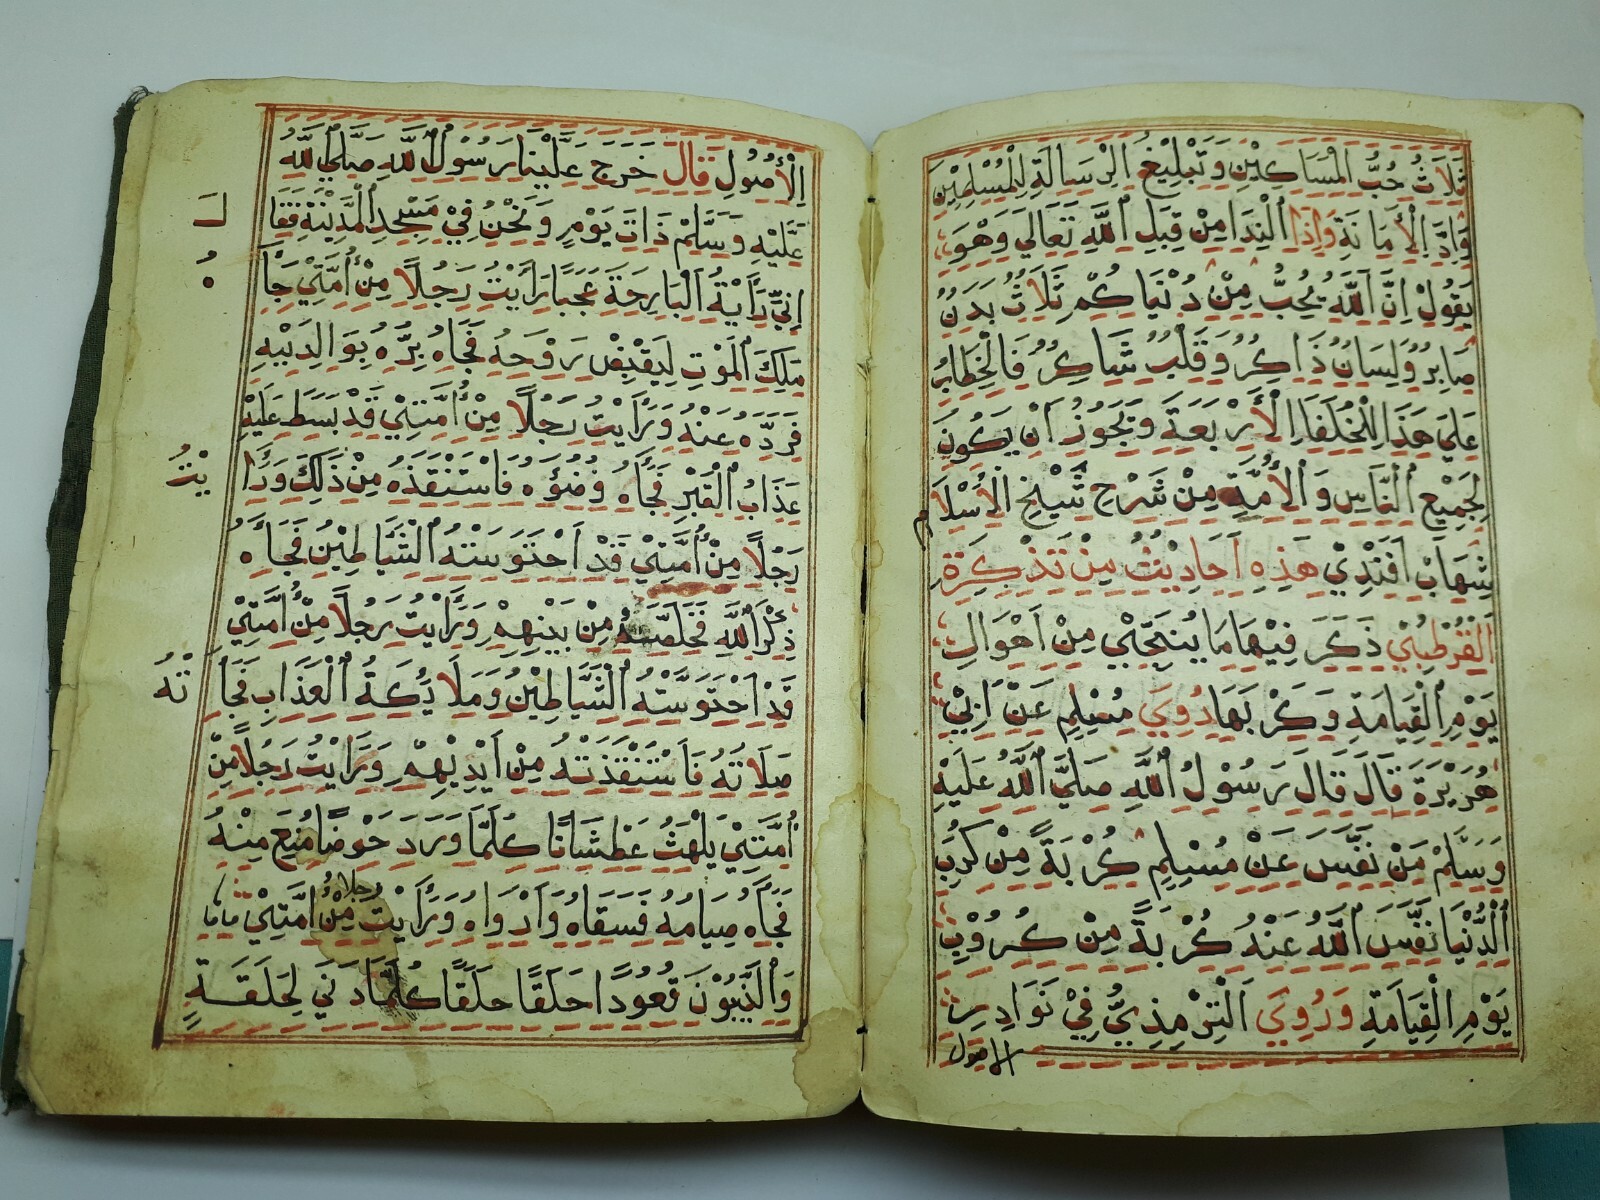 ثَلَاثٌ حُبُّ الْمَسَاكِيْنِ وَتَبْلِيْغُ الرِّسَالَةِ لِلْمُسْلِمِيْنَ
وَادَّ الْأَمَانَةِ وَاِذَا النِّدَا مِنْ قِبَلِ اللّٰهِ تَعَالَي وَهْوَ
يَقُوْلُ اِنَّ اللّٰهَ يُحِبُّ مِنْ دُنْيَاكُمْ ثَلَاثُ بَدَنٌ
صَابِرٌ وَلِسَانٌ ذَاكِرٌ وَقَلْبٌ شَاكِرٌ فَالْخِطَابُ
عَلَي هَذَا لِلْخُلَفَاِ الْأَرْبَعَةِ وَيَجُوْزُ اَنْ يَكُوْنَ
لِجَمِيْعِ النَّاسِ وَالْأُمَّةِ مِنْ شَرْحِ شَيْخِ الْاِسْلَامِ
شِهَابْ اَفَنْدِيْ هَذِهِ اَحَادِيْثُ مِنْ تَذْكِرَةِ
الْقُرْطُبِيْ ذَكَرَ فِيْهَا مَا يُنَجِّيْ مِنْ اَهْوَالِ
يَوْمِ الْقِيَامَةِ وَكَرْبِهَا رُوِيَ مُسْلِمٍ عَنْ اَبِيْ
هُرَيْرَةَ قَالَ قَالَ رَسُوْلُ اللّٰهِ صَلَّي اللّٰهُ عَلَيْهِ
وَسَلَّمْ مَنْ نَفَّسَ عَنْ مُسْلِمٍ كُرْبَةً مِنْ كُرَبِ
الدُّنْيَا نَفَّسَ اللّٰهُ عَنْهُ كُرْبَةً مِنْ كُرُوْبِ
يَوْمِ الْقِيَامَةِ وَرُوِيَ اَلتِّرْمِذِيُّ فِيْ نَوَادِرِ
الاصول
الْأُصُوْلِ قَالَ خَرَجَ عَلَيْنَا رَسُوْلُ اللّٰهِ صَلَّي اللّٰهُ
عَلَيْهِ وَسَلَّمْ ذَاتَ يَوْمٍ وَنَحْنُ فِيْ مَسْجِدِ الْمَدِيْنَةِ فَقَا
لَ
اِنِّيْ رَأَيْةُ الْبَارِحَةَ عَجَبًا رَاَيْتُ رَجُلًا مِنْ أُمَّتِيْ جَاَ
ءُ
مَلَكَ الْمَوْتِ لِيَقْبِضَ رَوْحَهُ فَجَاهُ بِرُّهُ بِوَالِدَيْهِ
فَرَدَّهُ عَنْهُ وَرَأَيْتُ رَجُلًا مِنْ أُمَّتِيْ قَدْ بَسَطَ عَلَيْهِ
عَذَابُ الْقَبْرِ فَجَأَهُ وُضُؤُهُ فَاسْتَنْقَذَهُ مِنْ ذَلِكَ وَرَاَ
يْتُ
رَجُلًا مِنْ أُمَّتِيْ قَدْ اَحْتَوَسَتْهُ الشَّيَاطِيْنُ فَجَأَهُ
ذِكْرُ اللّٰهِ فَخَلَّصَهُ مِنْ بَيْنِهِمْ وَرَأَيْتُ رَجُلًا مِنْ أُمَّتِيْ
قَدْ اَحْتَوَسَتْهُ الشَّيَاطِيْنُ وَمَلَايِكَةُ الْعَذَابِ فَجَأَ
تْهُ
صَلَاتُهُ فَاَسْتَنْقَذَتْهُ مِنْ اَيْدِيْهِمْ وَرَاَيْتُ رَجُلًا مِنْ
أُمَّتِيْ يَلْهَثُ عَطْشَانًا كُلَّمَا وَرَدَ حَوْضًا مُنِعَ مِنْهُ
فَجَأَهُ صِيَامُهُ فَسَقَاهُ وَاَرْوَاهُ وَرَأَيْتُ رجلا مِنْ أُمَّتِيْ
وَالنَّبِيُّوْنَ قُعُوْدًا حَلَقًا حَلَقًا كُلَّمَا دَنَي لِحَلَقَةٍ